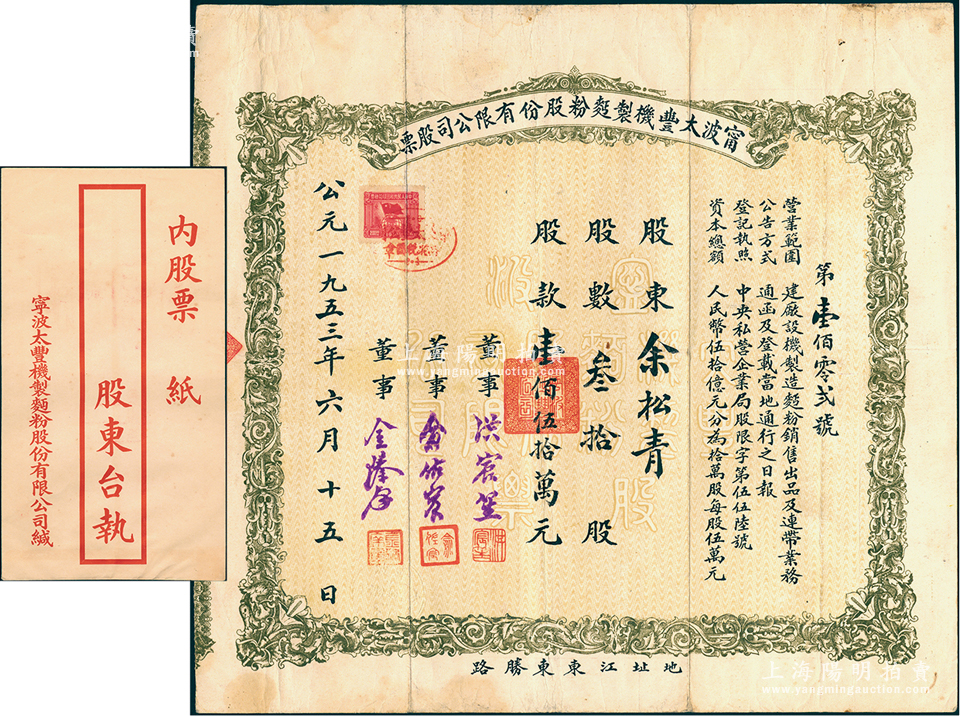 甯波太豐機製麫粉股份有限公司股票
第壹佰零貳號
營業範圍 建廠設機製造麫粉銷售出品及連帶業務
公告方式 通函及登載當地通行之日報
登記執照 中央私營企業局股限字第伍伍陸號
資本總額 人民幣伍拾億元分為拾萬股每股伍萬元
股東余松青
股數叁拾股
股款壹佰伍拾萬元
董事 洪宸笙
董事 俞佐宸
董事
公元一九五三年六月十五日
地址江東東勝路
內股票 紙
股東台執
寧波太豐機製麵粉股份有限公司緘
上海陽明拍賣
www.yangmingauction.com
上海陽明拍賣
www.yangmingauction.com